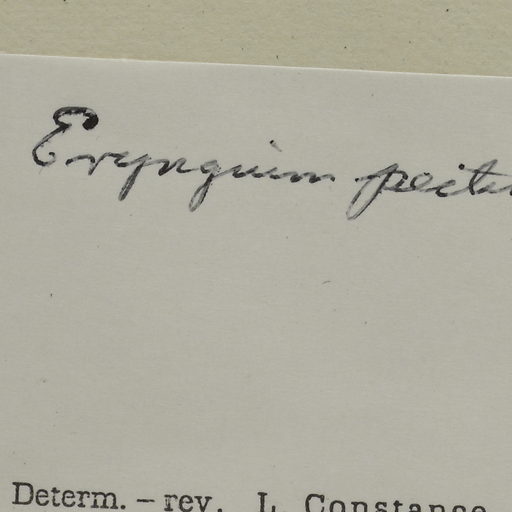 Eryngium
Determ. – rev. L. Constance